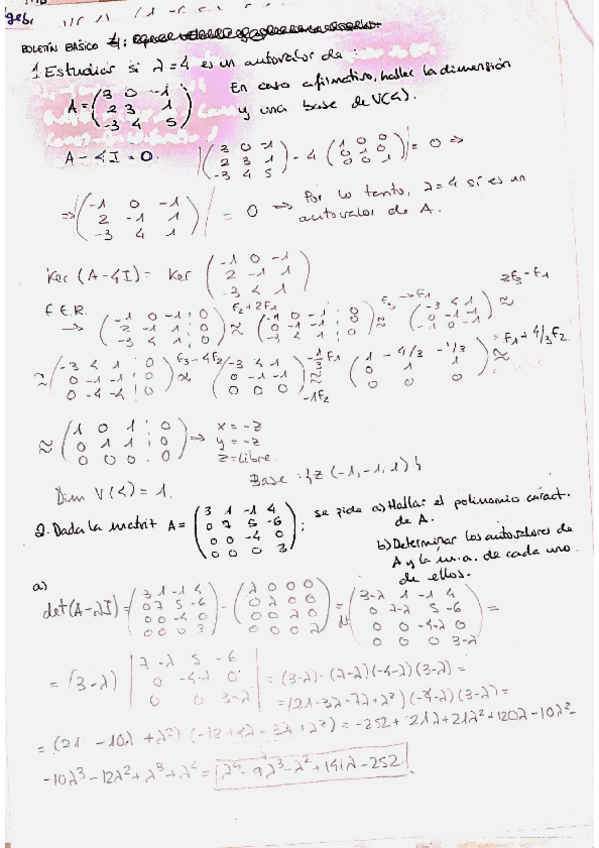 BOLETÍN BÁSICO 4:
1. Estudiar si λ=4 es un autovalor de:
A = ( 3 0 -1 ; 2 3 1 ; -3 4 5 ) En caso afirmativo, hallar la dimensión
y una base de V(4).
A - 4I = 0. | ( 3 0 -1 ; 2 3 1 ; -3 4 5 ) - 4 ( 1 0 0 ; 0 1 0 ; 0 0 1 ) | = 0 =>
=> | ( -1 0 -1 ; 2 -1 1 ; -3 4 1 ) | = 0 -> Por lo tanto, λ=4 sí es un
autovalor de A.
Ker (A-4I) = Ker ( -1 0 -1 ; 2 -1 1 ; -3 4 1 )
F.E.R.
-> ( -1 0 -1 : 0 ; 2 -1 1 : 0 ; -3 4 1 : 0 ) F2+2F1 ≈ ( -1 0 -1 : 0 ; 0 -1 -1 : 0 ; -3 4 1 : 0 ) F3->F1 ≈ ( -3 4 1 ; 0 -1 -1 ; -1 0 -1 ) 2F3-F1 ≈
≈ ( -3 4 1 : 0 ; 0 -1 -1 : 0 ; 0 -4 -4 : 0 ) F3-4F2 ≈ ( -3 4 1 ; 0 -1 -1 ; 0 0 0 ) -1/3 F1 ≈ -1F2 ( 1 -4/3 -1/3 ; 0 1 1 ; 0 0 0 ) F1+4/3F2 ≈
≈ ( 1 0 1 : 0 ; 0 1 1 : 0 ; 0 0 0 : 0 ) -> x = -z
y = -z
z = libre.
Base: {z (-1,-1,1)}
Dim V(4) = 1.
2. Dada la matriz A = ( 3 1 -1 4 ; 0 7 5 -6 ; 0 0 -4 0 ; 0 0 0 3 ); se pide a) Hallar el polinomio caract.
de A.
b) Determinar los autovalores de
A y la m.a. de cada uno
de ellos.
a)
det(A-λI) = ( 3 1 -1 4 ; 0 7 5 -6 ; 0 0 -4 0 ; 0 0 0 3 ) - ( λ 0 0 0 ; 0 λ 0 0 ; 0 0 λ 0 ; 0 0 0 λ ) = det ( 3-λ 1 -1 4 ; 0 7-λ 5 -6 ; 0 0 -4-λ 0 ; 0 0 0 3-λ ) =
= (3-λ) | 7-λ 5 -6 ; 0 -4-λ 0 ; 0 0 3-λ | = (3-λ)·(7-λ)(-4-λ)(3-λ) =
= (21-3λ-7λ+λ²)(-4-λ)(3-λ) =
= (21 -10λ + λ²)(-12+4λ-3λ+λ²) = -252+21λ+21λ²+120λ-10λ²-
-10λ³-12λ²+λ³+λ⁴ = λ⁴-9λ³-λ²+141λ-252.